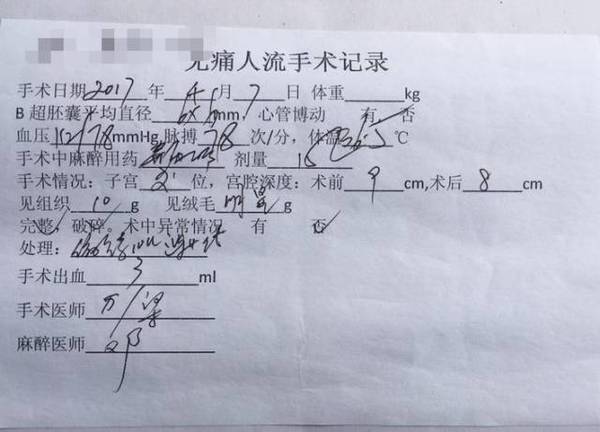 无痛人流手术记录
手术日期 2017 年 4 月 7 日 体重 kg
B 超胚囊平均直径 mm,心管博动 有 否
血压 /78 mmHg 脉搏 78 次/分,体温 ℃
手术中麻醉用药 剂量
手术情况:子宫 位,宫腔深度:术前 9 cm,术后 8 cm
见组织 10 g 见绒毛 明显 g
完整,破碎。术中异常情况 有 否
处理:
手术出血 3 ml
手术医师 万/梁
麻醉医师 邓